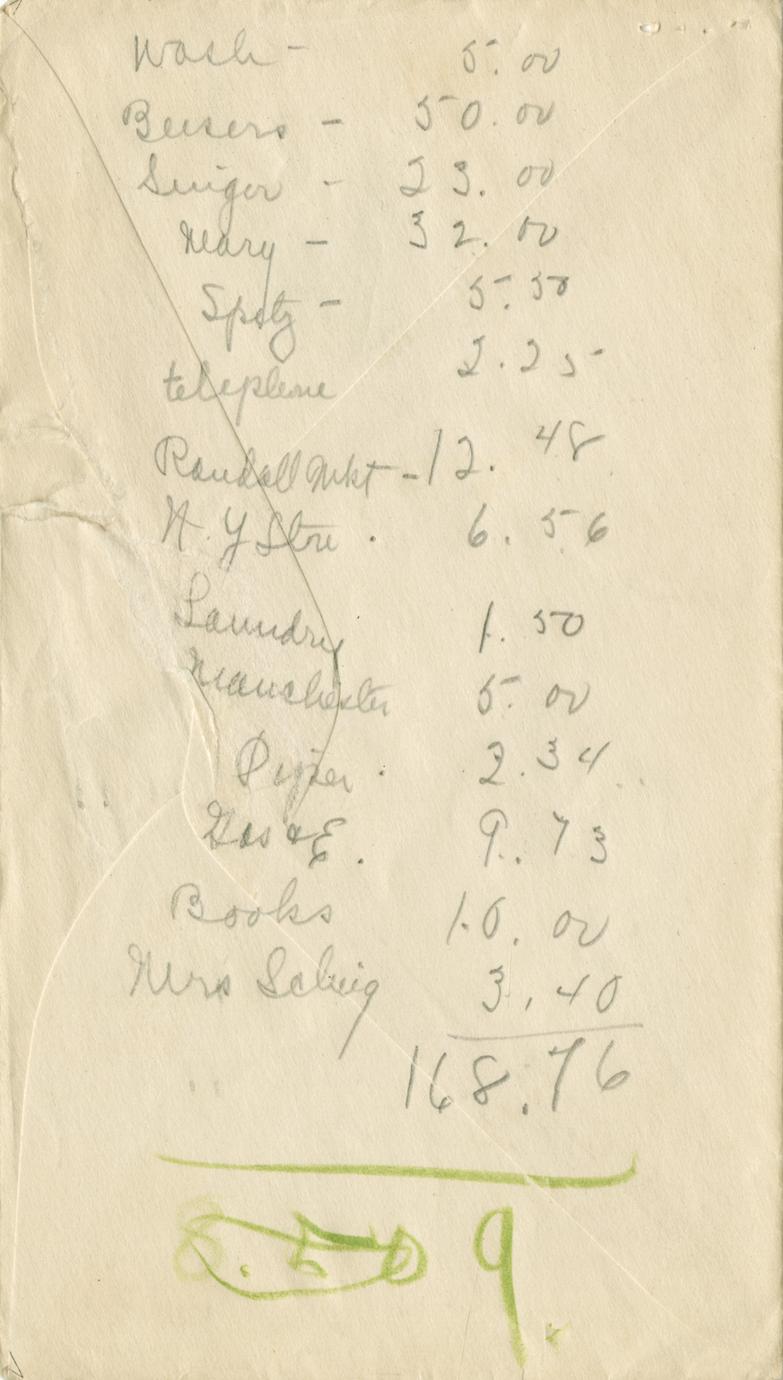 Wash - 5.00
50.00
Singer - 23.00
Mary - 32.00
Spatz - 5.50
telephone 2.25
Randall Mkt - 12.48
N.Y Store . 6.56
Laundry 1.50
Manchester 5.00
Piper . 2.34
Gas & E. 9.73
Books 10.00
Mrs 3.40
168.76
8.50 9